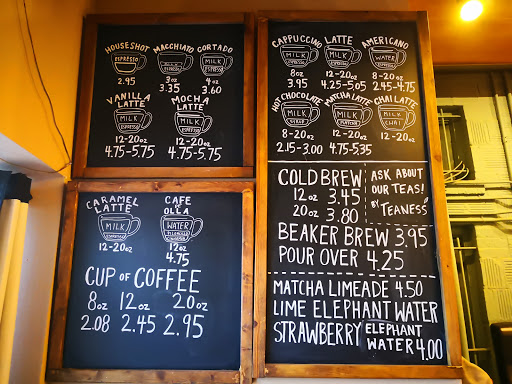 HOUSE SHOT MACCHIATO CORTADO
ESPRESSO MILK ESPRESSO MILK ESPRESSO
2.95 3oz 4oz
3.35 3.60
VANILLA LATTE MOCHA LATTE
MILK ESPRESSO MILK ESPRESSO
12-20oz 12-20oz
4.75-5.75 4.75-5.75
CARAMEL LATTE CAFE OLLA
MILK ESPRESSO WATER
12-20oz 12oz
4.75
CUP OF COFFEE
8oz 12oz 20oz
2.08 2.45 2.95
CAPPUCCINO LATTE AMERICANO
MILK ESPRESSO MILK ESPRESSO WATER ESPRESSO
8oz 12-20oz 8-20oz
3.95 4.25-5.05 2.45-4.75
HOT CHOCOLATE MATCHA LATTE CHAI LATTE
MILK MILK MATCHA MILK CHAI
8-20oz 12-20oz 12-20oz
2.15-3.00 4.75-5.35
COLD BREW
12oz 3.45
20oz 3.80
ASK ABOUT
OUR TEAS!
BY TEANESS
BEAKER BREW 3.95
POUR OVER 4.25
MATCHA LIMEADE 4.50
LIME ELEPHANT WATER
STRAWBERRY ELEPHANT
WATER 4.00